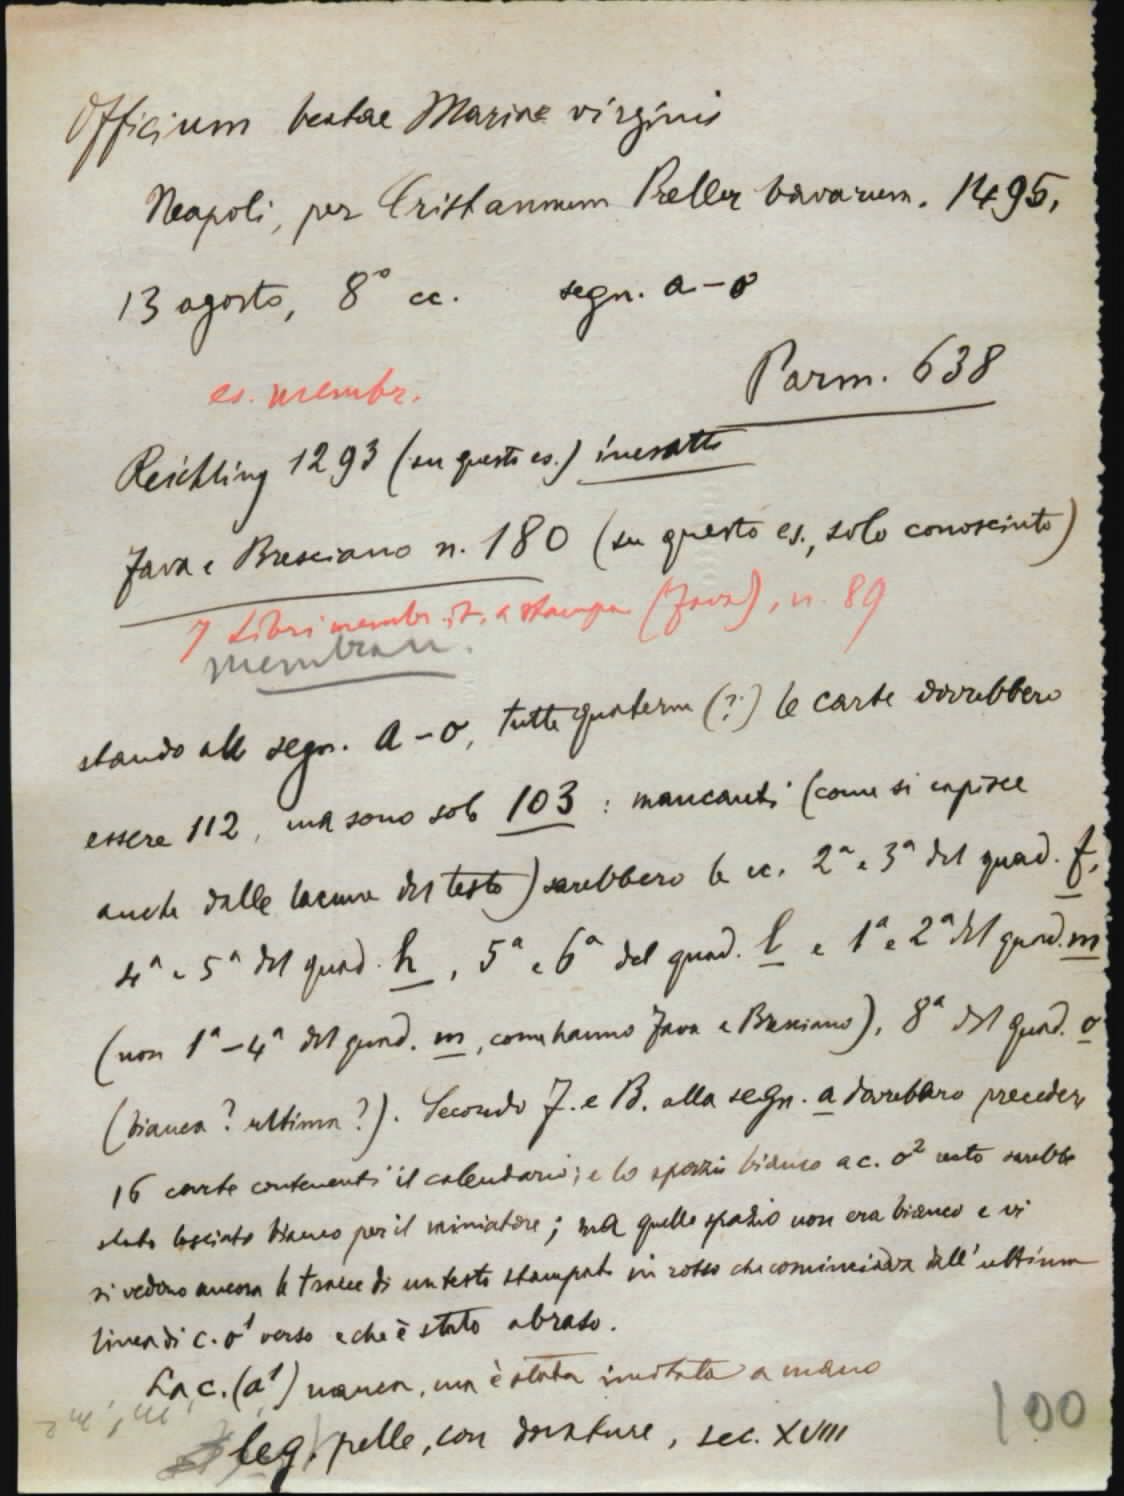 Officium beatae Mariae virginis
Neapoli, per Cristannum Preller bavarum. 1495,
13 agosto, 8° cc. segn. a-o
Parm. 638
es. membr.
Reichling 1293 (su questo es.) inesatto
Fava e Bresciano n. 180 (su questo es., solo conosciuto)
7 Libri membr. it. a stampa (Fava), n. 89
membran.
stando alle segn. a-o, tutte quaterni (?) le carte dovrebbero
essere 112, ma sono solo 103: mancanti (come si capisce
anche dalle lacune del testo) sarebbero le cc. 2ª e 3ª del quad. f,
4ª e 5ª del quad. h, 5ª e 6ª del quad. l e 1ª e 2ª del quad. m
(non 1ª-4ª del quad. m, come hanno Fava e Bresciano), 8ª del quad. o
(bianca? ultima?). Secondo F. e B. alla segn. a dovrebbero precedere
16 carte contenenti il calendario; e lo spazio bianco a c. o² recto sarebbe
stato lasciato bianco per il miniatore; ma quello spazio non era bianco e vi
si vedono ancora le tracce di un testo stampato in rosso che cominciava dall'ultima
linea di c. o¹ verso e che è stato abraso.
La c. (a¹) manca, ma è stata imitata a mano
leg. pelle, con dorature, sec. XVIII
100